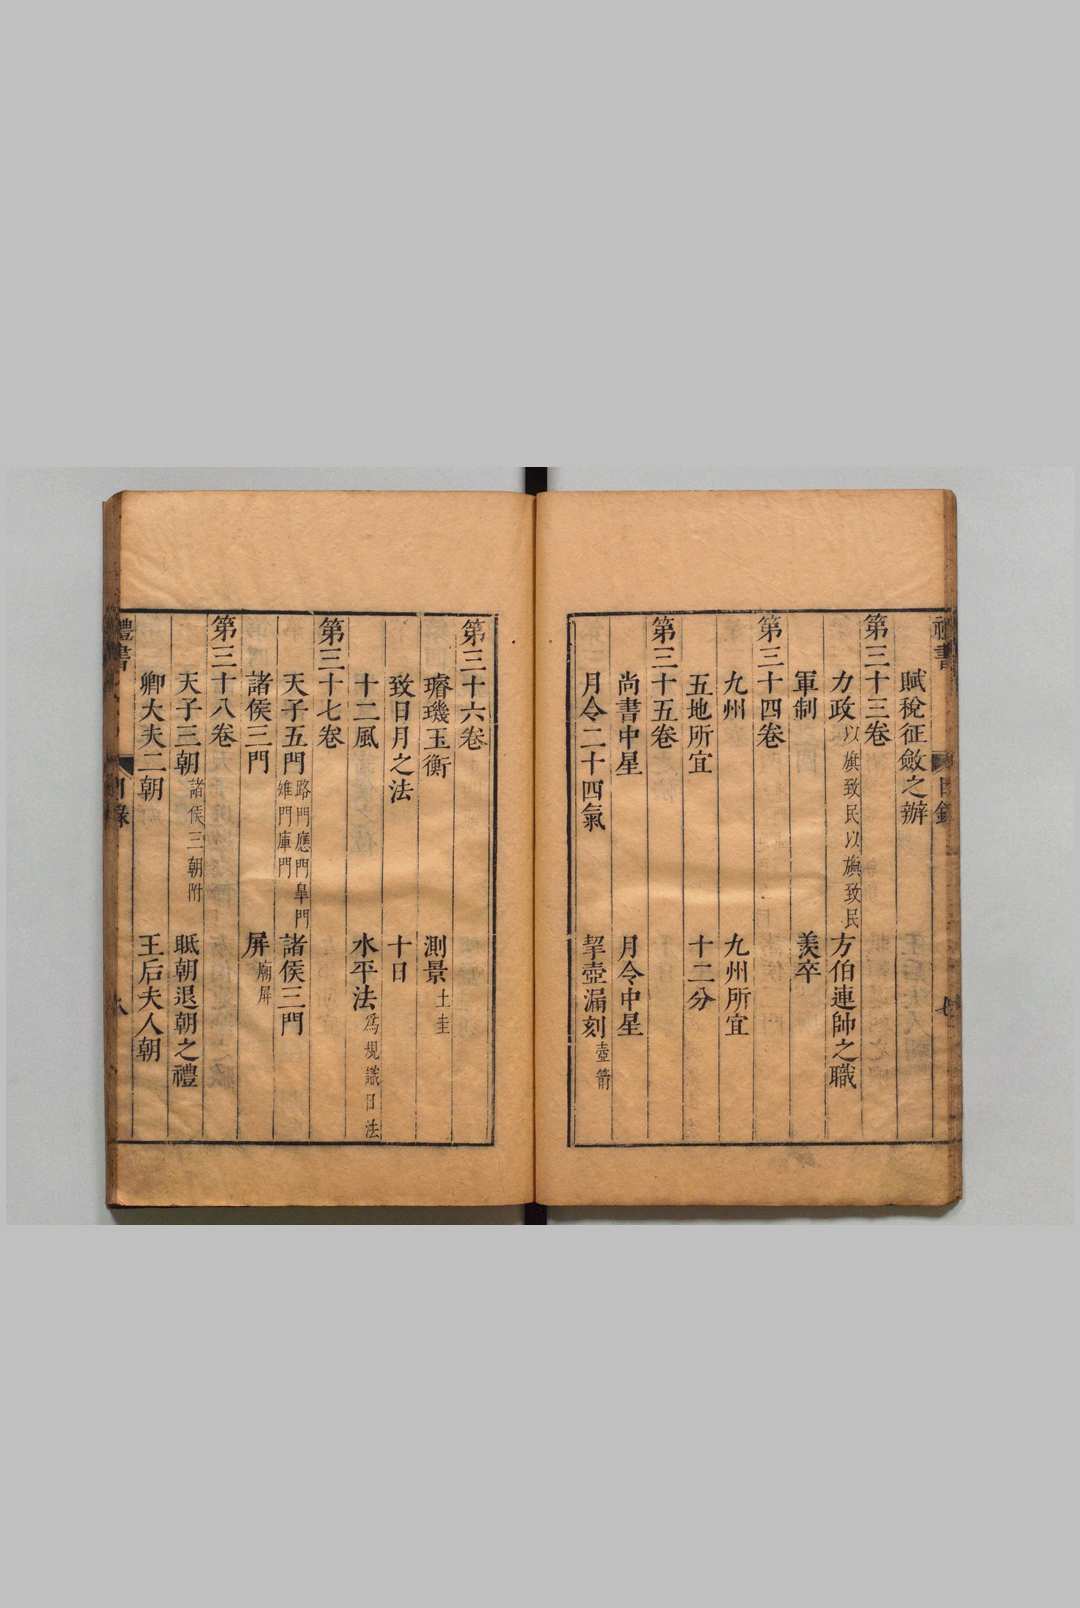 禮書
目錄
七
賦稅征斂之辦
第三十三卷
力政以旗致民以旟致民 方伯連帥之職
軍制 羨卒
第三十四卷
九州 九州所宜
五地所宜 十二分
第三十五卷
尚書中星 月令中星
月令二十四氣 挈壺漏刻壺箭
第三十六卷
璿璣玉衡 測景土圭
致日月之法 十日
十二風 水平法為規識日法
第三十七卷
天子五門路門應門臯門雉門庫門 諸侯三門
諸侯三門 屏廟屏
第三十八卷
天子三朝諸侯三朝附 眡朝退朝之禮
卿大夫二朝 王后夫人朝
禮書
目錄
八